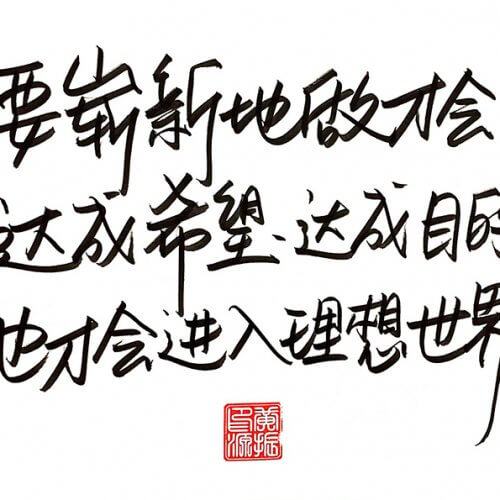 要崭新地做才会
达成希望、达成目的
也才会进入理想世界
黄振源印